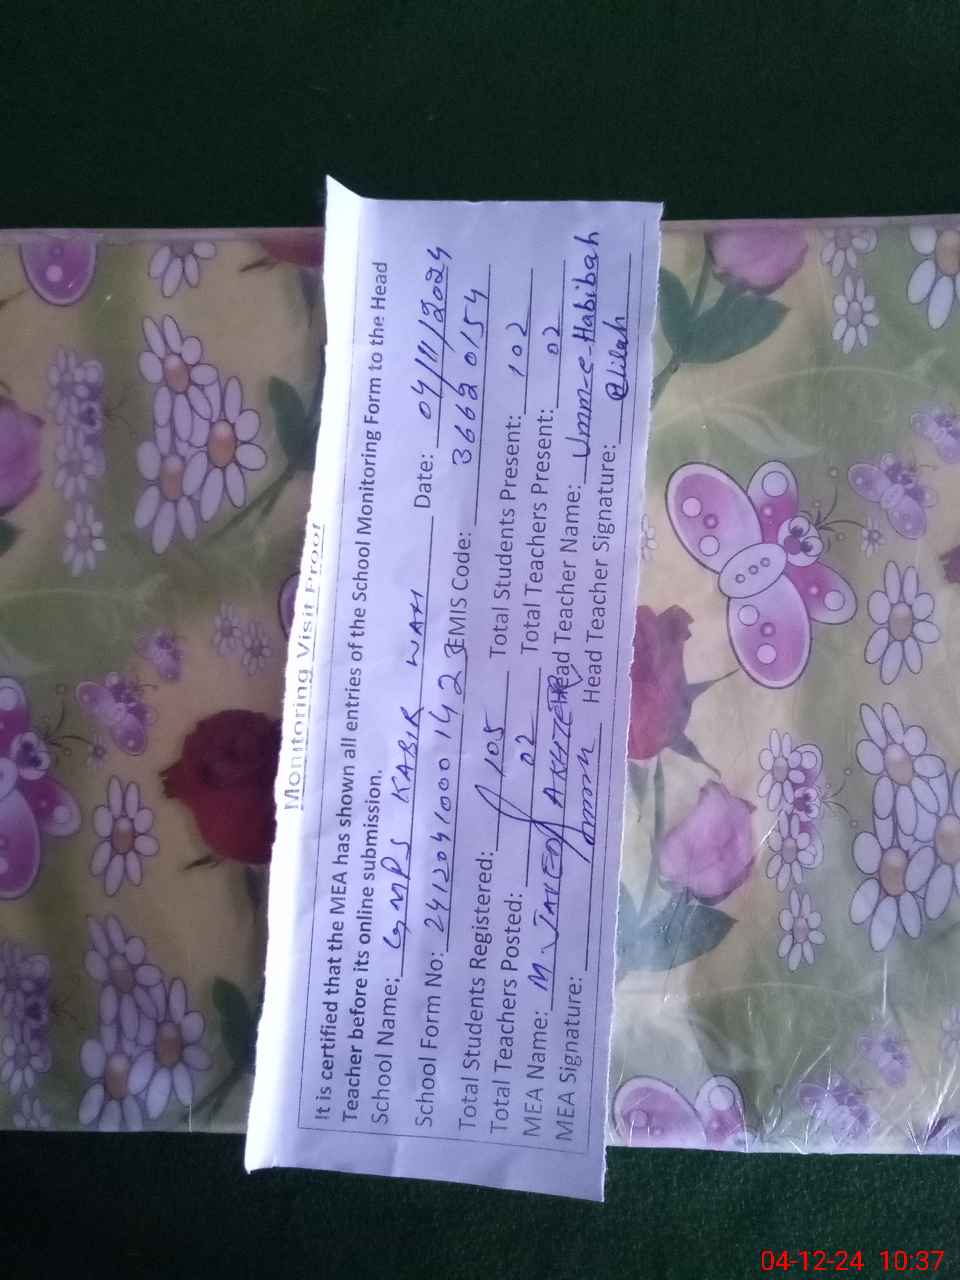 Monitoring Visit Proof
It is certified that the MEA has shown all entries of the School Monitoring Form to the Head
Teacher before its online submission.
School Name: GMPS KABIR WAH Date: 04/11/2024
School Form No: 2412041000142 EMIS Code: 36620154
Total Students Registered: 105 Total Students Present: 102
Total Teachers Posted: 02 Total Teachers Present: 02
MEA Name: M. JAVED AKHTER Head Teacher Name: Umm-e-Habibah
MEA Signature: Head Teacher Signature:
04-12-24 10:37